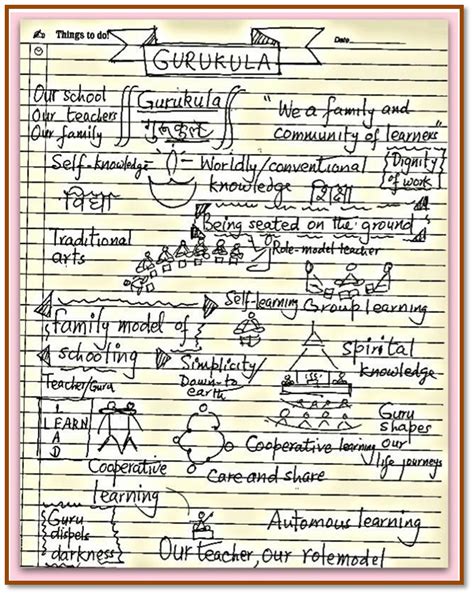 Things to do!
Date
GURUKULA
Our school
Our teachers
Our family
Gurukula
गुरुकुल
"We a family and
community of learners"
Self-knowledge
Worldly/conventional
knowledge शिक्षा
Dignity
of work
विद्या
"Being seated on the ground"
Traditional
arts
Role-model teacher
Self-learning
Group learning
family model of
schooling
Simplicity/
Down-to
earth
Spirital
knowledge
Teacher/Guru
I
LEARN
A D
Guru
shapes
our
life journeys
Cooperative learning
Cooperative
learning
Care and share
Guru
dispels
darkness
Automous learning
Our teacher, Our rolemodel